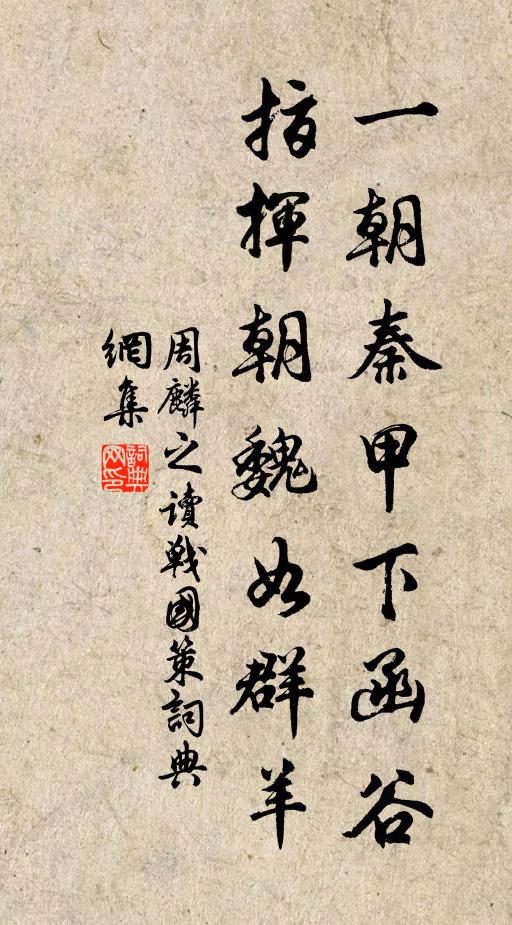 一朝秦甲下函谷
指揮朝魏如群羊
周麟之讀戰國策詞典
網集
詞典網印